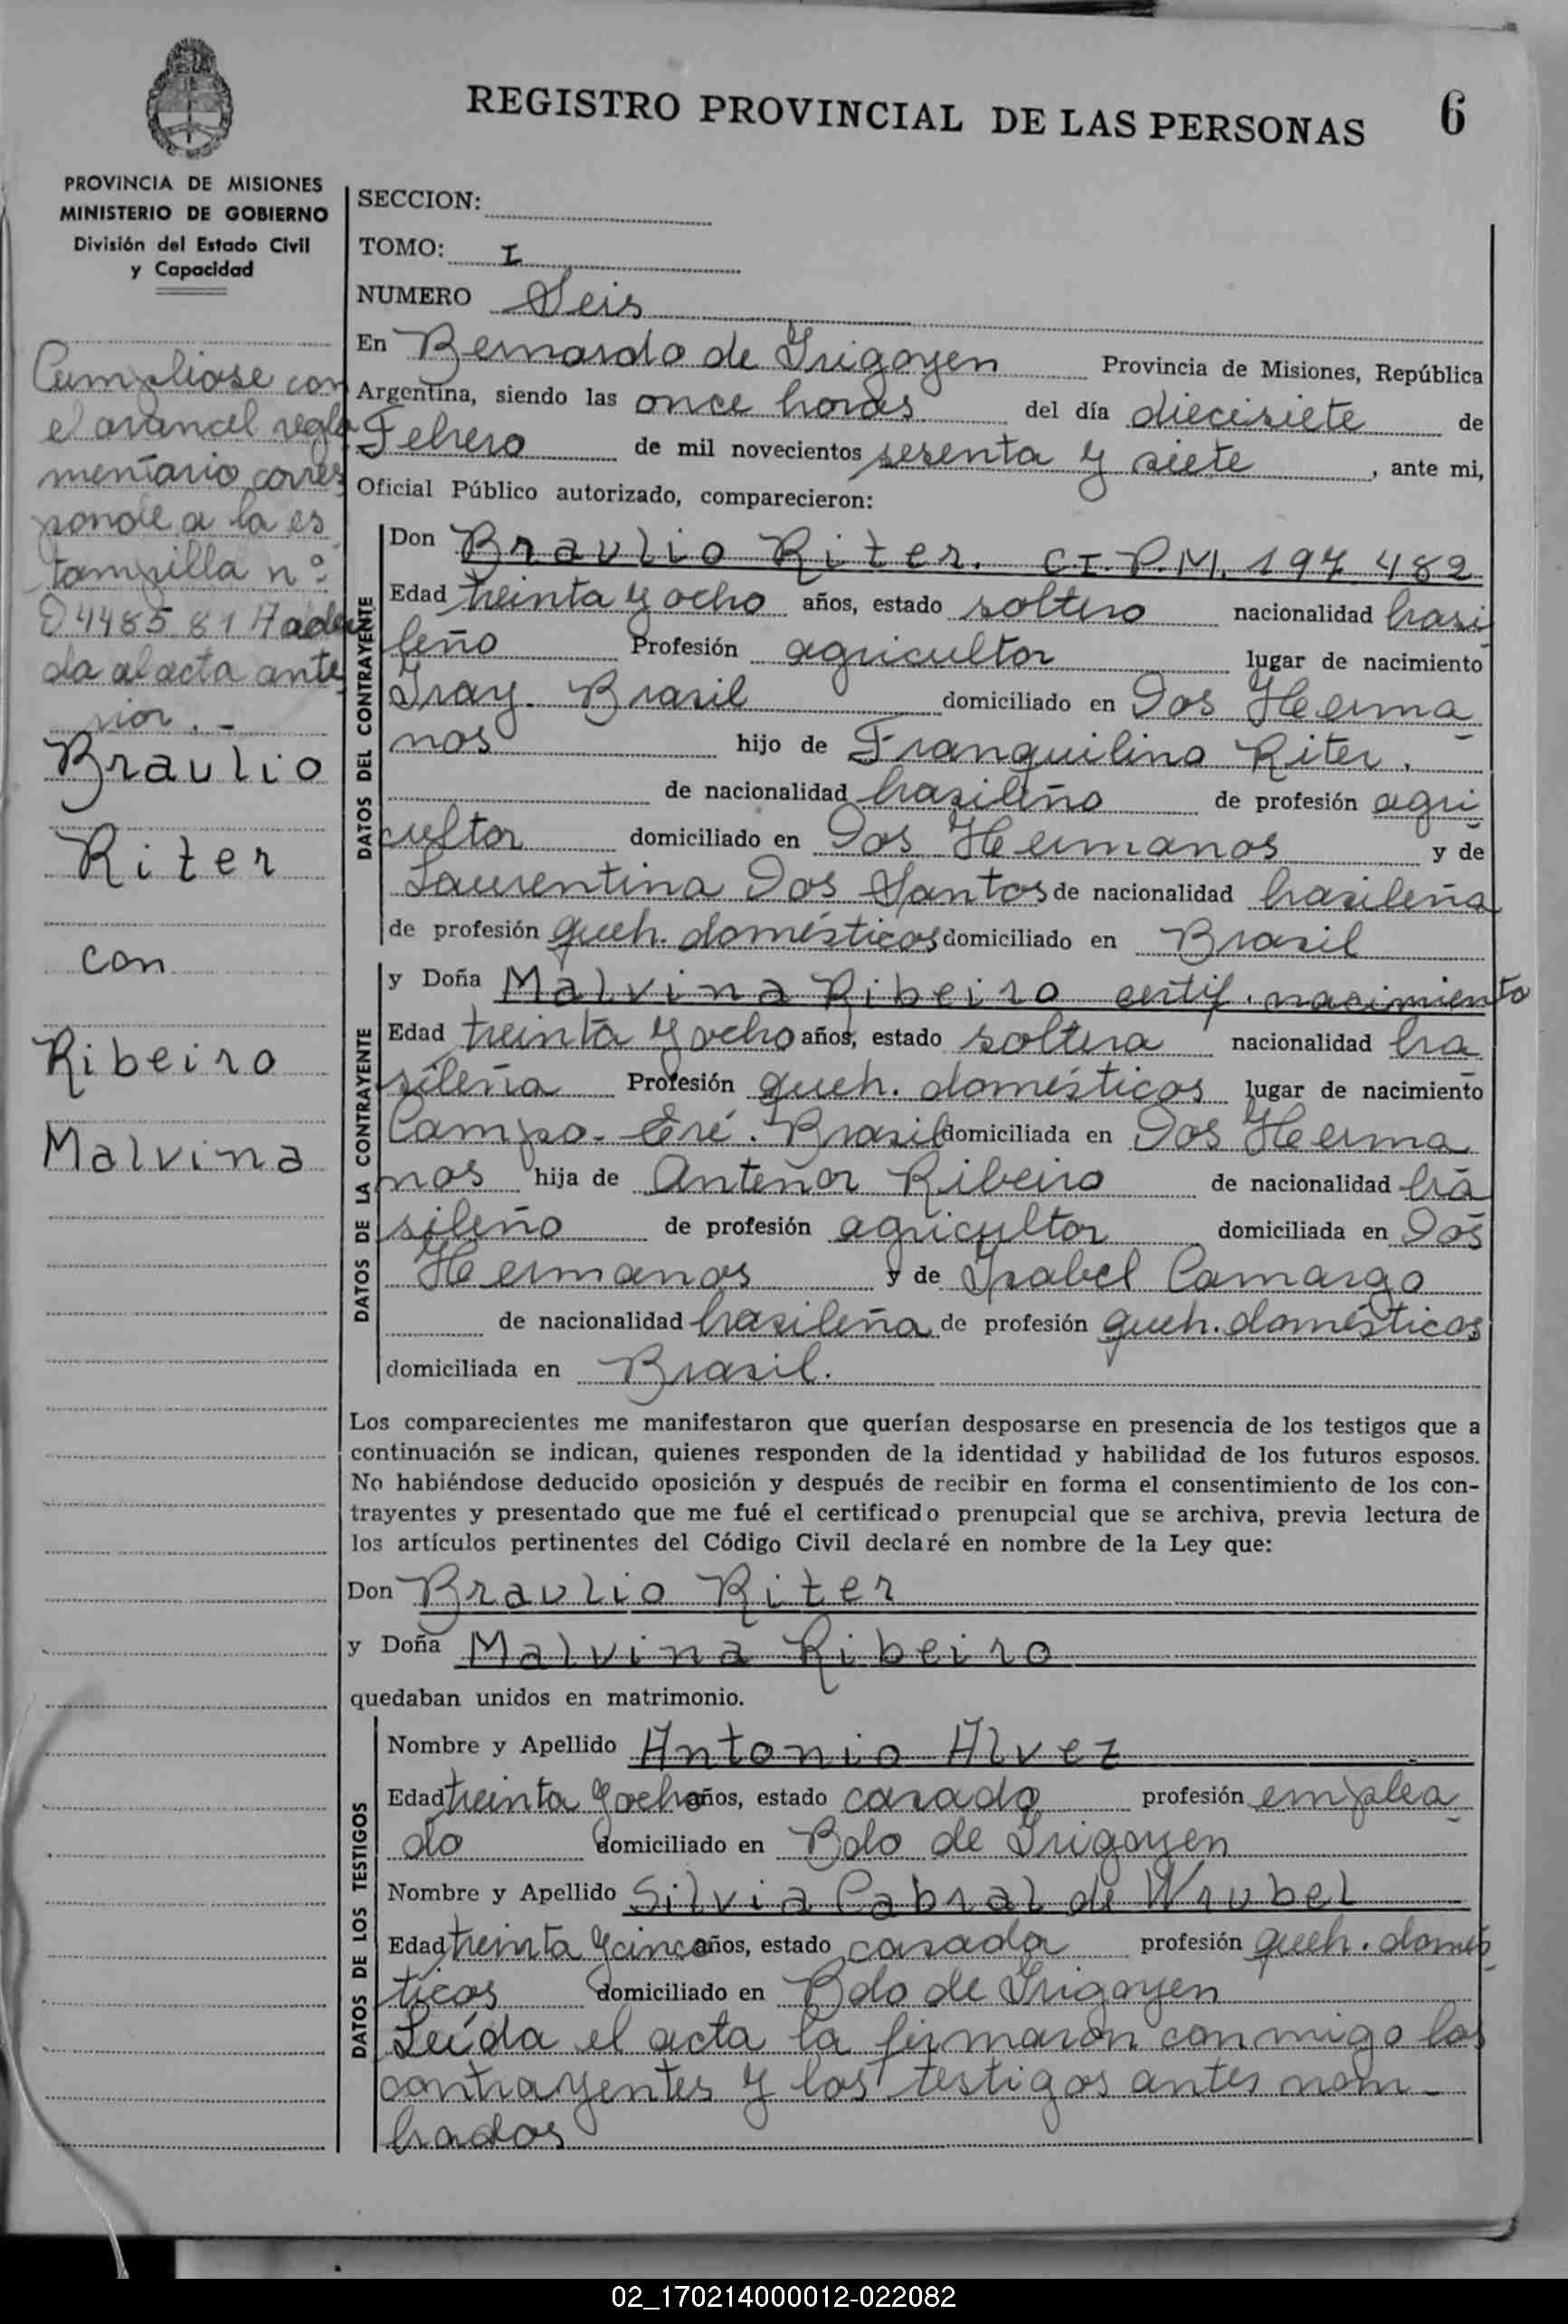 REGISTRO PROVINCIAL DE LAS PERSONAS 6
PROVINCIA DE MISIONES
MINISTERIO DE GOBIERNO
División del Estado Civil
y Capacidad
Cumpliose con
el arancel regla
mentario corres
ponde a la es
tampilla nº
da al acta ante
rior.-
Braulio
Riter
con
Ribeiro
Malvina
SECCION:
TOMO: I
NUMERO Seis
En Bernardo de Irigoyen Provincia de Misiones, República
Argentina, siendo las once horas del día diecisiete de
Febrero de mil novecientos sesenta y siete, ante mi,
Oficial Público autorizado, comparecieron:
DATOS DEL CONTRAYENTE
Don Braulio Riter. CI.P.M. 197.482
Edad treinta y ocho años, estado soltero nacionalidad brasi
leño Profesión agricultor lugar de nacimiento
Iray. Brasil domiciliado en Dos Herma
nos hijo de Franquilino Riter.
de nacionalidad brasileño de profesión agri
cultor domiciliado en Dos Hermanos y de
Laurentina Dos Santos de nacionalidad brasileña
de profesión queh. domésticos domiciliado en Brasil
DATOS DE LA CONTRAYENTE
y Doña Malvina Ribeiro certif. nacimiento
Edad treinta y ocho años, estado soltera nacionalidad bra
sileña Profesión queh. domésticos lugar de nacimiento
Campo-Eré. Brasil domiciliada en Dos Herma
nos hija de Antenor Ribeiro de nacionalidad bra
sileño de profesión agricultor domiciliada en Dos
Hermanos y de Isabel Camargo
de nacionalidad brasileña de profesión queh. domésticos
domiciliada en Brasil.
Los comparecientes me manifestaron que querían desposarse en presencia de los testigos que a
continuación se indican, quienes responden de la identidad y habilidad de los futuros esposos.
No habiéndose deducido oposición y después de recibir en forma el consentimiento de los con-
trayentes y presentado que me fué el certificado prenupcial que se archiva, previa lectura de
los artículos pertinentes del Código Civil declaré en nombre de la Ley que:
Don Braulio Riter
y Doña Malvina Ribeiro
quedaban unidos en matrimonio.
DATOS DE LOS TESTIGOS
Nombre y Apellido Antonio Alvez
Edad treinta y ocho años, estado casado profesión emplea
do domiciliado en Bdo de Irigoyen
Nombre y Apellido Silvia Cabral de Wrubel
Edad treinta y cinco años, estado casada profesión queh. domés
ticos domiciliado en Bdo de Irigoyen
Leída el acta la firmaron conmigo los
contrayentes y los testigos antes nom-
brados
02_170214000012-022082